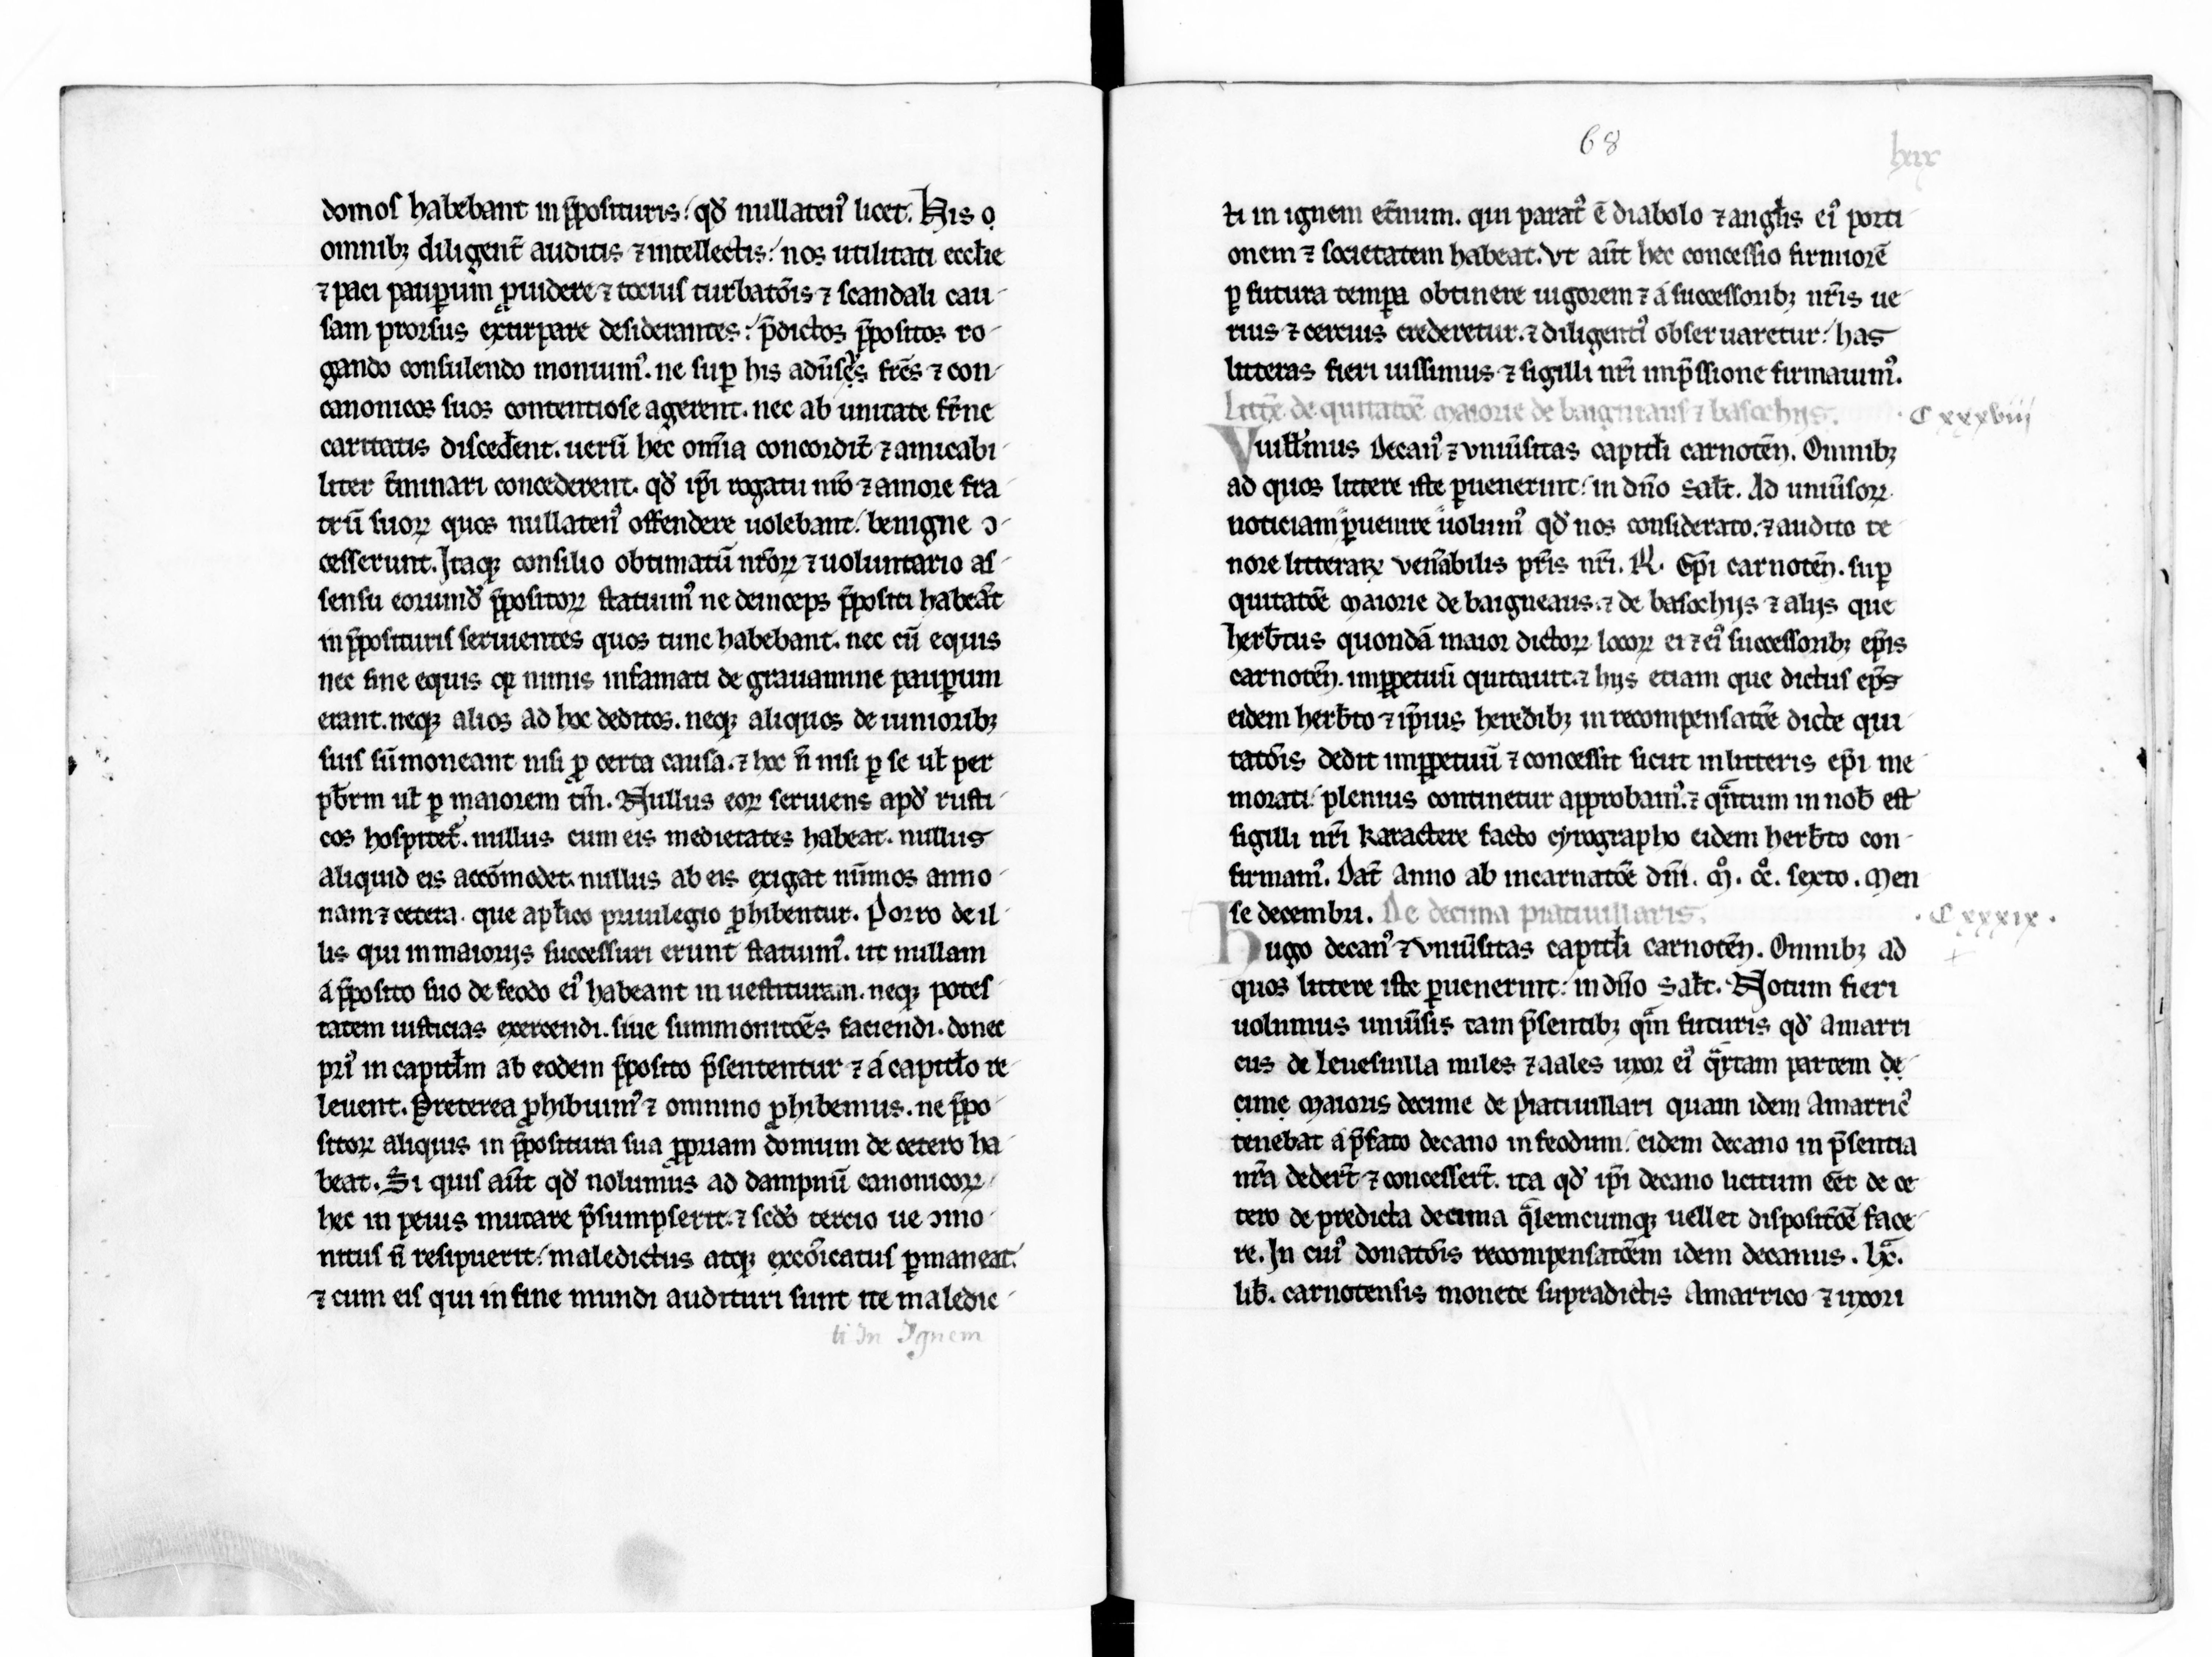 domos habebant in p̄posituris: qd̄ nullaten⁹ licet. His o
omnibꝫ diligent̄ auditis ⁊ intellectis: nos utilitati eccƚie
⁊ paci pauꝑum ꝓuidere ⁊ tocius turbatōis ⁊ scandali cau-
sam prorsus extirpare desiderantes: p̄dictos p̄positos ro-
gando consulendo monuim⁹. ne suꝑ his adūsꝰ frēs ⁊ con-
canonicos suos contentiose agerent. nec ab unitate fr̄ne
caritatis discedēnt. uerū hec om̄ia concordit̄ ⁊ amicabi-
liter t̄minari concederent. qd̄ ip̄i rogatu nr̄o ⁊ amore fra-
trū suoꝝ quos nullaten⁹ offendere uolebant: benigne ↄ-
cesserunt. Itaqꝫ consilio obtimatū nr̄oꝝ ⁊ uoluntario as-
sensu eorumd̄ p̄positoꝝ statuim⁹ ne deinceps p̄positi habeāt
in p̄posituris seruientes quos tunc habebant. nec cū equis
nec sine equis qꝛ nimis infamati de grauamine pauꝑum
erant. neqꝫ alios ad hoc deditos. neqꝫ aliquos de iunioribꝫ
suis sūmoneant nisi ꝓ certa causa. ⁊ hoc n̄ nisi ꝑ se uƚ per
pb̄rm uƚ ꝑ maiorem tm̄. Nullus eoꝝ seruiens apd̄ rusti-
cos hospitet᷑. nullus cum eis medietates habeat. nullus
aliquid eis accōmodet. nullus ab eis exigat nūmos anno-
nam ⁊ cetera. que apƚico priuilegio ꝓhibentur. Porro de il-
lis qui in maiorijs successuri erunt statuim⁹. ut nullam
á p̄posito suo de feodo ei⁹ habeant inuestituram. neqꝫ potes-
tatem iusticias exercendi. siue summonitōēs faciendi. donec
pri⁹ in capitƚm ab eodem p̄posito p̄sententur ⁊ á capitƚo re-
leuent. Preterea ꝓhibuim⁹ ⁊ omnino ꝓhibemus. ne p̄po-
sitoꝝ aliquis in p̄positura sua ꝓpriam domum de cetero ha-
beat. Si quis aūt qd̄ nolumus ad dampnū canonicoꝝ
hec in peius mutare p̄sumpserit. ⁊ scd̄o tercio ue ↄmo-
nitus n̄ resipuerit: maledictus atqꝫ excōicatus ꝑmaneat.
⁊ cum eis qui in fine mundi audituri sunt ite maledic-
ti In Ignem
68
lxix
ti in ignem et̄num. qui parat⁹ ē diabolo ⁊ angƚis ei⁹ porti-
onem ⁊ societatem habeat. Vt aūt hec concessio firmiorē
ꝑ futura tempa obtinere uigorem ⁊ á successoribꝫ nr̄is ue-
rius ⁊ cercius crederetur. ⁊ diligenti⁹ obseruaretur: has
litteras fieri iussimus ⁊ sigilli nr̄i imp̄ssione firmauim⁹.
Litt̄e de quitatōe maiorie de baigniaus ⁊ basochijs. · C xxxviii
Vuiƚƚmus decan⁹ ⁊ vniūsitas capitƚi carnotēn. Omnibꝫ
ad quos littere iste ꝑuenerint: in dn̄o saƚt. Ad uniūsoꝝ
noticiam ꝑuenire uolum⁹ qd̄ nos considerato. ⁊ audito te-
nore litteraꝝ ven̄abilis pr̄is nr̄i. R. ep̄i carnotēn. suꝑ
quitatōe maiorie de baigneaus. ⁊ de basochijs ⁊ alijs que
herb̄tus quondā maior dictoꝝ locoꝝ ei ⁊ ei⁹ successoribꝫ ep̄is
carnotēn. imꝑpetuū quitauit. ⁊ hijs etiam que dictus ep̄s
eidem herb̄to ⁊ ip̄ius heredibꝫ in recompensatōe dicte qui-
tatōis dedit imꝑpetuū ⁊ concessit sicut in litteris ep̄i me-
morati plenius continetur approbam⁹. ⁊ qn̄tum in nob̄ est
sigilli nr̄i karactere facto cyrographo eidem herb̄to con-
firmam⁹. Dat̄ Anno ab incarnatōe dn̄i. m̊. cc̊. sexto. Men-
se decembri. De decima piatiuillaris. · C xxxix ·
Hugo decan⁹ ⁊ vniūsitas capitƚi carnotēn. Omnibꝫ ad
quos littere iste ꝑuenerint: in dn̄o saƚt. Notum fieri
uolumus uniūsis tam p̄sentibꝫ qm̄ futuris qd̄ Amarri-
cus de leuesuilla miles ⁊ aales uxor ei⁹ qr̄tam partem de-
cime maioris decime de piatiuillari quam idem Amarric⁹
tenebat á p̄fato decano in feodum: eidem decano in p̄sentia
nr̄a dedert̄ ⁊ concessert̄. ita qd̄ ip̄i decano licitum eēt de ce-
tero de predicta decima qālemcumqꝫ uellet dispositōē face-
re. In cui⁹ donatōis recompensatōēm idem decanus. lxᵃ.
lib̄. carnotensis monete supradictis Amarrico ⁊ uxori